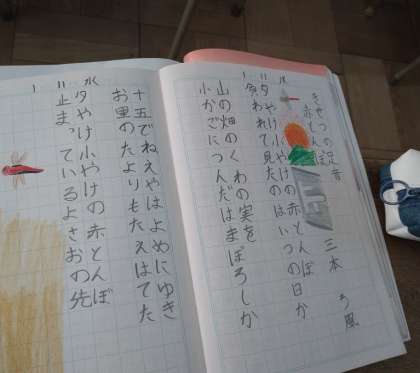 きせつの
赤とんぼ
三木 ろ風
夕やけ小やけの赤とんぼ
負われて見たのはいつの日か
山の畑のくわの実を
小かごにつんだはまぼろしか
十五でねえやはよめにゆき
お里のたよりもたえはてた
夕やけ小やけの赤とんぼ
止まっているよさおの先